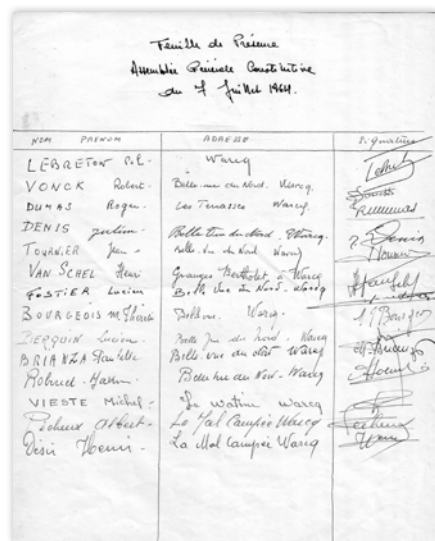 Feuille de Présence
Assemblée Générale Constitutive
du 7 Juillet 1964.
NOM PRENOM ADRESSE Signature
LEBRETON Warcq
VONCK Robert - Belle-vue du Nord. Warcq.
DUMAS Roger - Les Terrasses Warcq.
DENIS Belle Vue du Nord Warcq.
TOURNIER Jean - Belle-Vue du Nord Warcq
VAN SCHEL Henri Granges Bertholet à Warcq
FOSTIER Lucien Belle Vue du Nord - Warcq
BOURGEOIS M. Thérèse Warcq. MT Bourgeois
Lucien - Belle Vue du Nord - Warcq
BRIANZA Belle vue du Nord - Warcq
Belle vue du Nord - Warcq
VIESTE Michel - La Warcq
Pecheux Albert - Le Mal Campée Warcq Pecheux
Henri - La Mal Campée Warcq